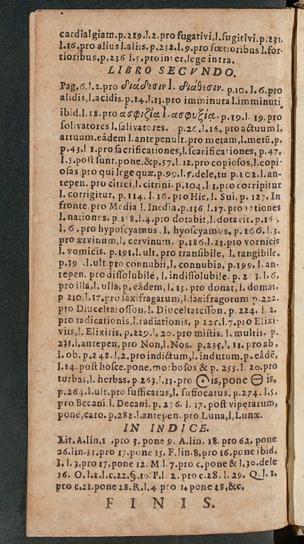 cardialgiam.p.219.l.2.pro fugativi,l.fugitivi.p.231.
l.16.pro alius l.aliis.p.232.l.9.pro fœtoribus l.for-
tioribus.p.236 l.5.pro inter, lege intra.
LIBRO SECVNDO.
Pag.6.l.2.pro διάθεσιν l. διάθεσιν. p.10.l.6.pro
alidis, l.acidis.p.14.l.13.pro imminuta l.imminuti
ibid.l.18.pro ασφιζία l. ασφυξία. p.19.l.19.pro
solvatores l.salivatores. p.26.l.16.pro actuum l.
artuum.eadem l.antepenult.pro metam, l.metu.
p.45.l.1.pro sacrificationes, l.scarificationes, p.47.
l.5.post sunt.pone.&p.57.l.12.pro copiosos, l.copi-
osas pro qui lege quæ.p.99.l.5.dele,tu p.102.l.an-
tepen. pro citrei, l. citrini. p.104.l.1.pro corripitur
l. corrigitur, p.114.l.16.pro Hic, l. Sni. p.127.In
fronte pro Media l. Inedia.p.136 l.17.pro
l. nationes. p.138.l.4.pro dotabit, l. dotavit.p.16
l.6.pro hypoſcyamus l. hyoſcyamus, p.166.l.3.
pro ærvinum, l. cervinum. p.186.l.21.pro vornicis
l.vomicis. p.191.l.ult.pro transibile, l. tangibile.
p.39 l.ult.pro connabii, l. connubia, p.199.l.an-
tepen. pro dissolubile, l.indissolubile. p.2 3.l.6.
pro illa, l. ulla, p.eâdem, l.15. pro donat, l. domat.
p 210.l.17.pro saxifragarum, l.saxifragorum p.222.
pro Diuceltatosson, l. Diuceltatesson. p.224. l.2.
pro radicationis, l.radiationis, p 225.l.7.pro Elixi-
viis, l.Elixiris. p.229.l.20.pro mistis. l.multis. p.
231.l.antepen.pro Non, l.Nos. p.235, l.11.pro ab,
l.ob.p.248.l.2.pro indictum, l.indutum. p.eâdē,
l.14.post hosce.pone, morbosos & p.255.l.20.pro
turbas, l.herbas.p.263.l.13.pro ☉is, pone ⊖is.
p.264.l.ult.pro sufficatus, l.suffocatus, p.274.l.5.
pro Becani l. Decani. p.276.l.17.post viperarum,
pone, caro. p.282.l.antepen. pro Luna, l.Lunx.
IN INDICE.
Lit.A.lin.1.pro 3.pone 9.A.lin.18.pro 62.pone
26.lin.31.pro 17.pone 15.F.lin.8.pro 16.pone ibid.
I.l.3.pro 17.pone 12.M l.7.pro c, pone & l.30.dele
16.O.l.2.l.c.22.§.10.P.l.2.pro c.28.l.29.Q.l.1.
pro c.21.pone 28.R.l.4.pro 1.pone 28.&c.
FINIS.